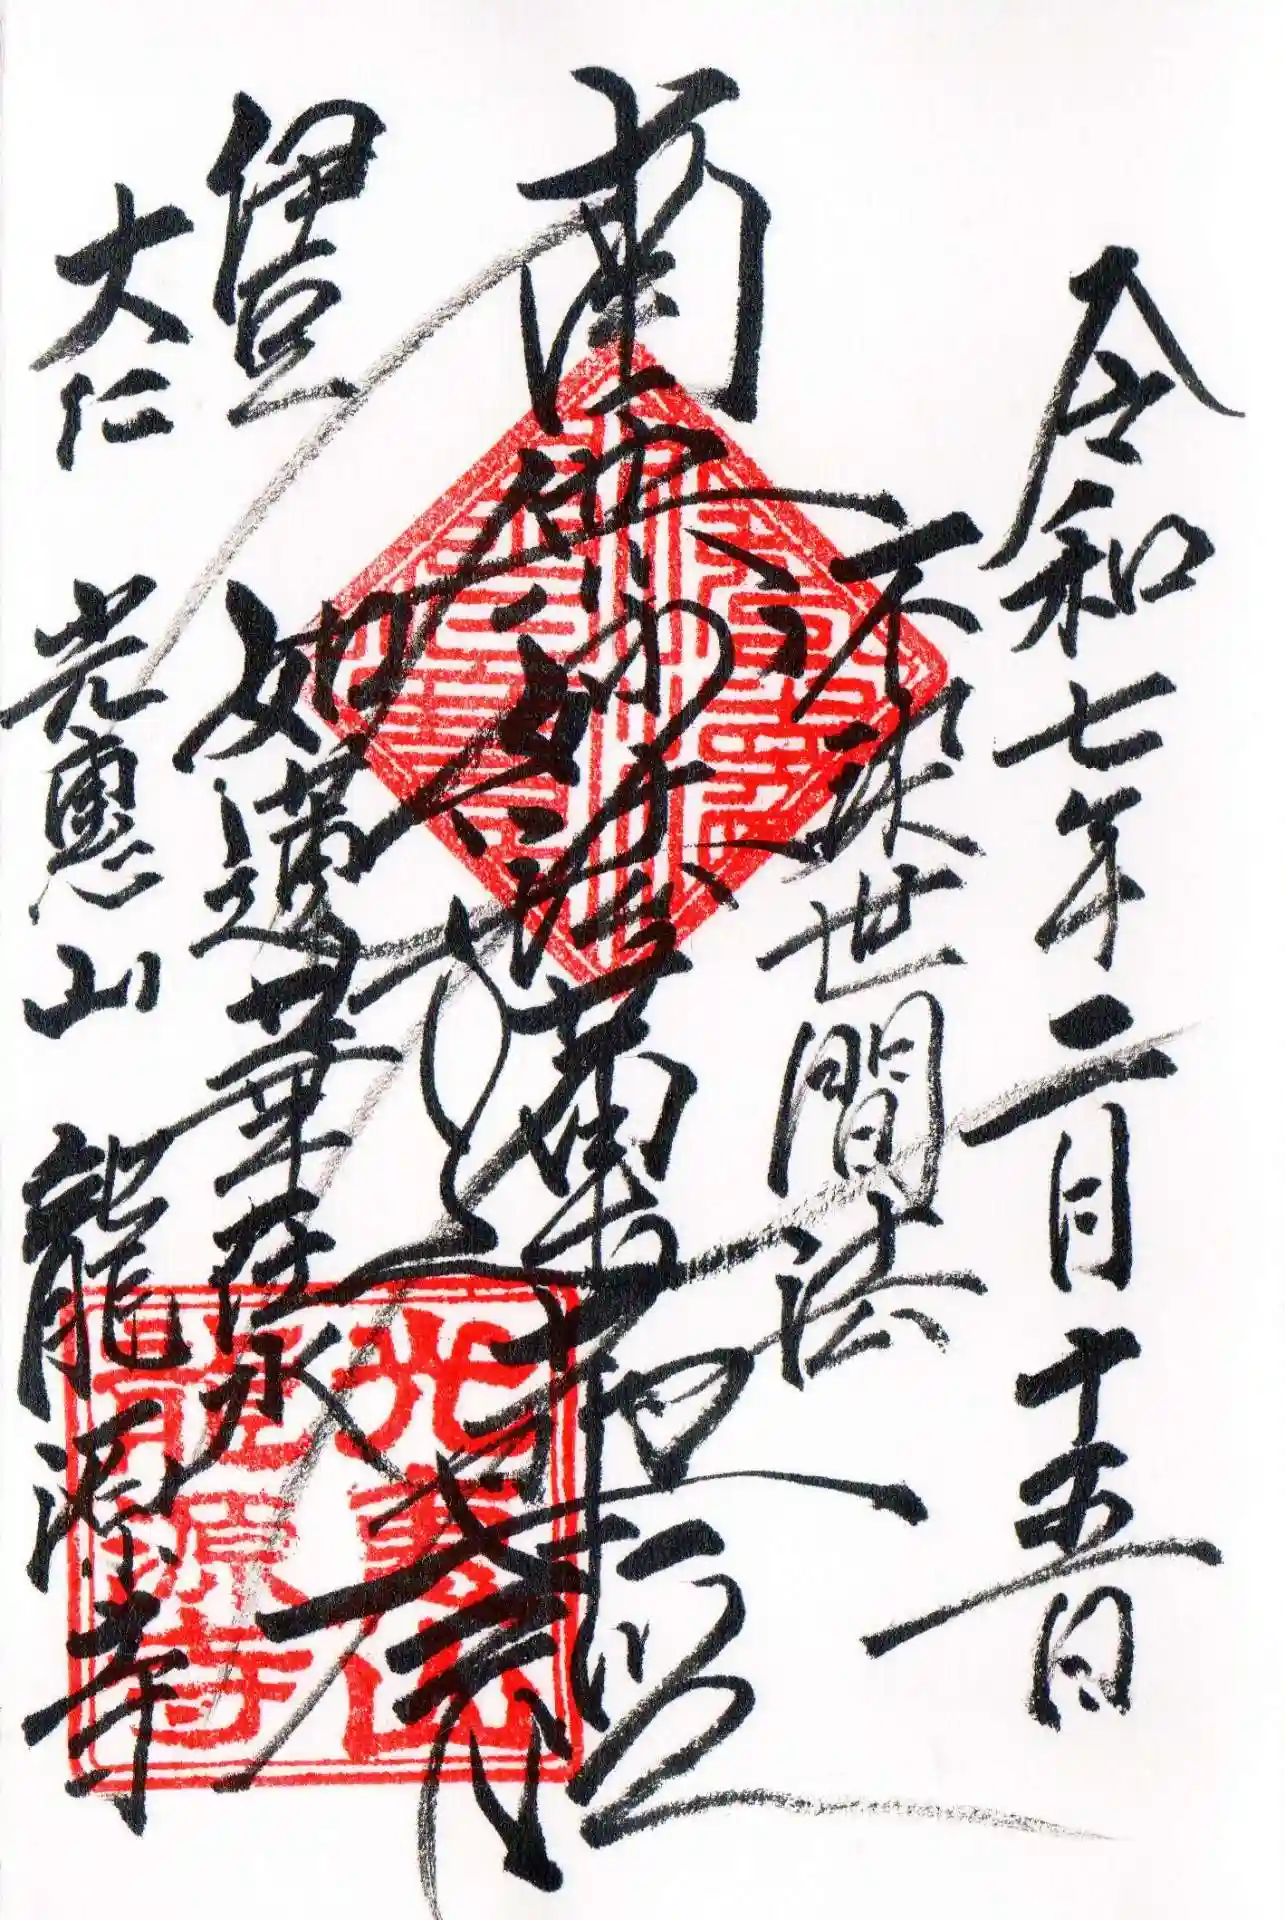 令和七年二月十五日
不染世間法
南無妙法蓮華経
如蓮華在水
伊豆
大仁 光惠山 龍源寺
光惠山
龍源寺